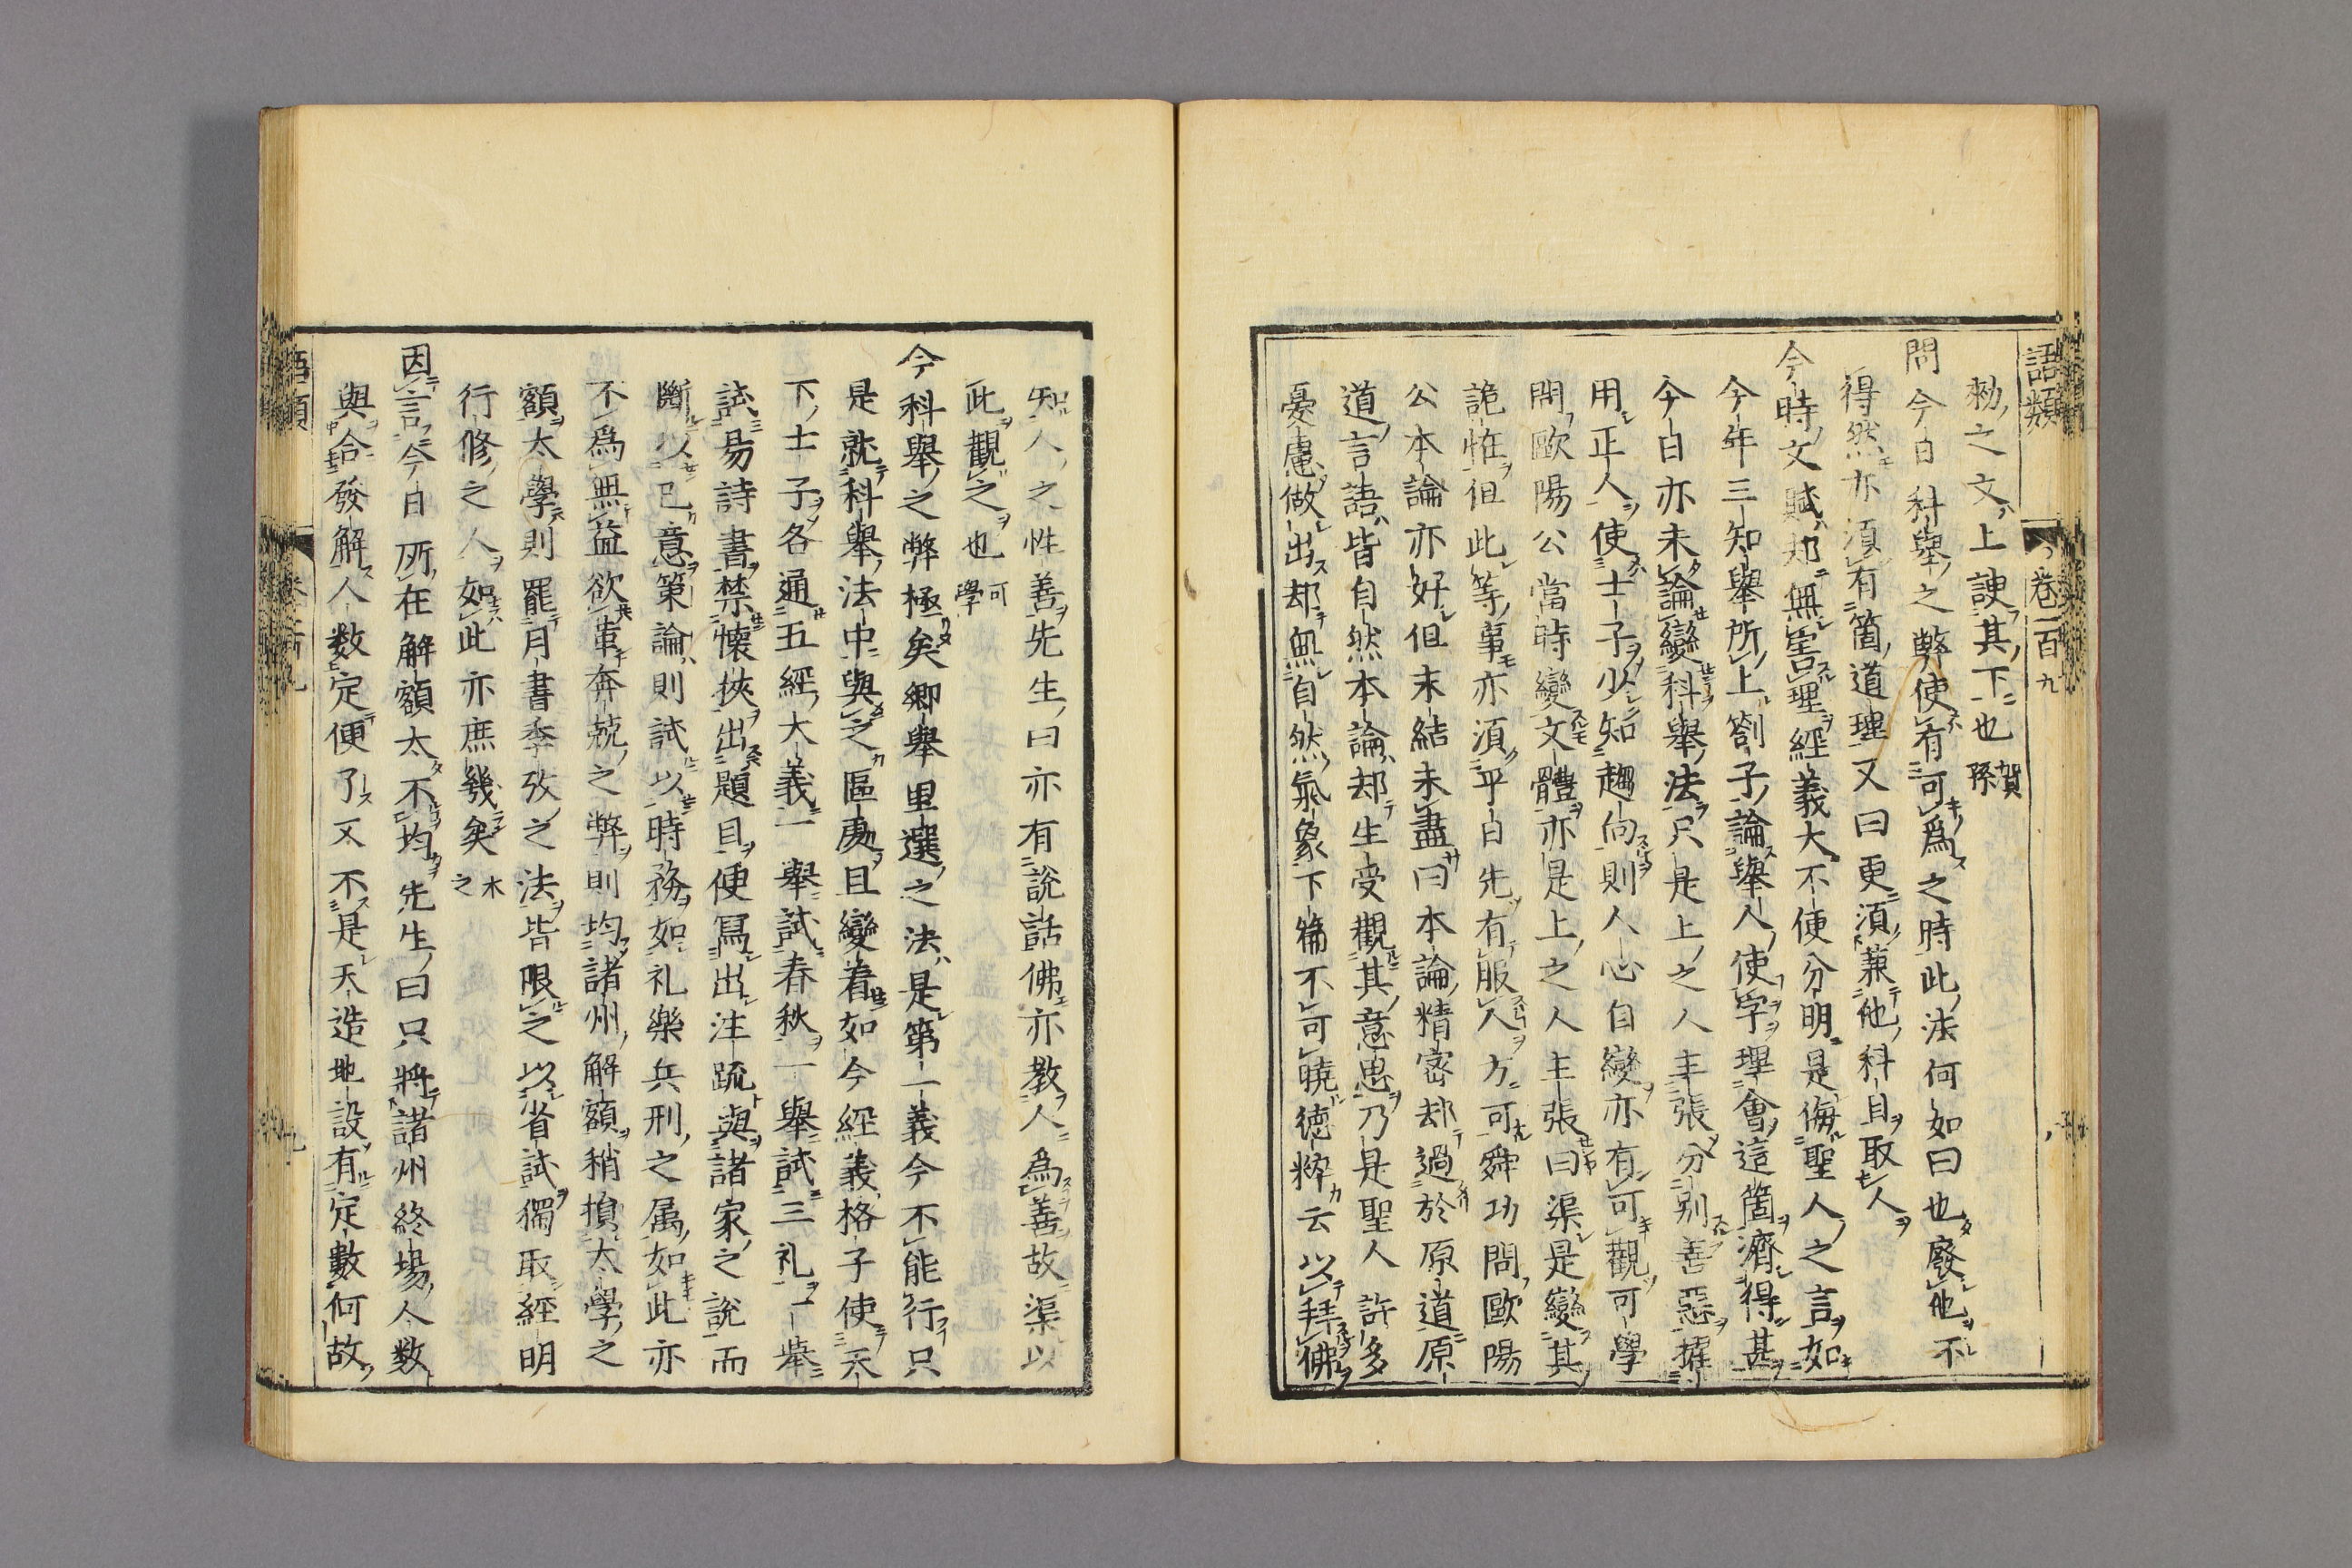 語類 卷一百九
勑之文上諛其下也 賀孫
問今日科舉之弊使有可爲之時此法何如曰也廢他不
得然亦須有箇道理又曰更須兼他科目取人
今時文賦却無害理經義大不便分明是侮聖人之言如
今年三知舉所上劄子論舉人使字理會這箇濟得甚
今日亦未論變科舉法只是上之人主張分别善惡擢
用正人使士子少知趨向則人心自變亦有可觀可學
問歐陽公當時變文體亦是上之人主張曰渠是變其
詭恠但此等事亦須平日先有服人方可舜功問歐陽
公本論亦好但末結未盡曰本論精密却過於原道原
道言語皆自然本論却生受觀其意思乃是聖人許多
憂慮做出却無自然氣象下篇不可曉德粹云以拜佛
知人之性善先生曰亦有說話佛亦教人爲善故渠以
此觀之也 可學
今科舉之弊極矣鄉舉里選之法是第一義今不能行只
是就科舉法中與之區處且變着如今經義格子使天
下士子各通五經大義一舉試春秋一舉試三礼一舉
試易詩書禁懷挾出題目便寫出注疏與諸家之說而
斷以已意策論則試以時務如礼樂兵刑之属如此亦
不爲無益欲革奔競之弊則均諸州解額稍損太學之
額太學則罷月書季攷之法皆限之以省試獨取經明
行修之人如此亦庶幾矣 木之
因言今日所在解額太不均先生曰只將諸州終場人数
與合發解人数定便了又不是天造地設有定數何故
語類